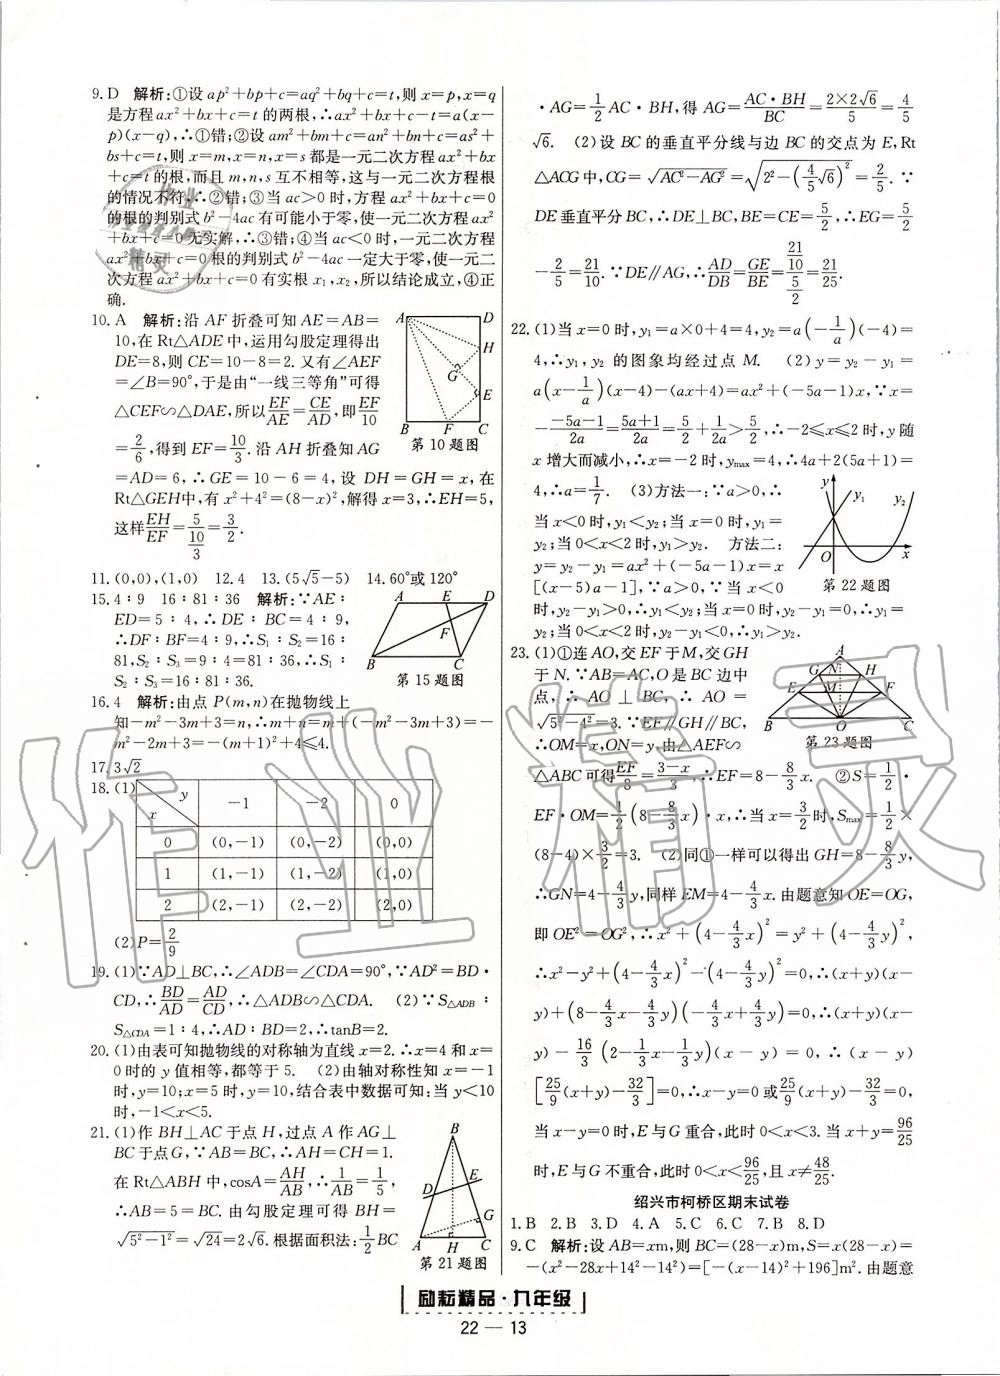 9. D 解析:①设 ap²+bp+c=aq²+bq+c=t,则 x=p,x=q
是方程 ax²+bx+c=t 的两根,∴ax²+bx+c-t=a(x-
p)(x-q),∴①错;②设 am²+bm+c=an²+bn+c=as²+
bs+c=t,则 x=m,x=n,x=s 都是一元二次方程 ax²+bx
+c=t 的根,而且 m,n,s 互不相等,这与一元二次方程根
的情况不符,∴②错;③当 ac>0 时,方程 ax²+bx+c=0
的根的判别式 b²-4ac 有可能小于零,使一元二次方程 ax²
+bx+c=0 无实解,∴③错;④当 ac<0 时,一元二次方程
ax²+bx+c=0 根的判别式 b²-4ac 一定大于零,使一元二
次方程 ax²+bx+c=0 有实根 x₁,x₂,所以结论成立,④正
确.
10. A 解析:沿 AF 折叠可知 AE=AB=
10,在 Rt△ADE 中,运用勾股定理得出
DE=8,则 CE=10-8=2. 又有∠AEF
=∠B=90°,于是由“一线三等角”可得
△CEF∽△DAE,所以 EF/AE=CE/AD,即 EF/10
=2/6,得到 EF=10/3. 沿 AH 折叠知 AG
=AD=6,∴GE=10-6=4,设 DH=GH=x,在
Rt△GEH中,有 x²+4²=(8-x)²,解得 x=3,∴EH=5,
这样 EH/EF=5/(10/3)=3/2.
A D H G E B F C
第10题图
11. (0,0),(1,0) 12. 4 13. (5√5-5) 14. 60°或 120°
15. 4∶9 16∶81∶36 解析:∵AE∶
ED=5∶4,∴DE∶BC=4∶9,
∴DF∶BF=4∶9,∴S₁∶S₂=16∶
81,S₂∶S₃=9∶4=81∶36,∴S₁∶
S₂∶S₃=16∶81∶36.
A E D F B C
第15题图
16. 4 解析:由点 P(m,n)在抛物线上
知-m²-3m+3=n,∴m+n=m+(-m²-3m+3)=-
m²-2m+3=-(m+1)²+4≤4.
17. 3√2
18. (1)
x y -1 -2 0
0 (0,-1) (0,-2) (0,0)
1 (1,-1) (1,-2) (1,0)
2 (2,-1) (2,-2) (2,0)
(2)P=2/9
19. (1)∵AD⊥BC,∴∠ADB=∠CDA=90°,∵AD²=BD·
CD,∴BD/AD=AD/CD,∴△ADB∽△CDA. (2)∵S△ADB∶
S△CDA=1∶4,∴AD∶BD=2,∴tanB=2.
20. (1)由表可知抛物线的对称轴为直线 x=2.∴x=4 和 x=
0 时的 y 值相等,都等于 5. (2)由轴对称性知 x=-1
时,y=10;x=5 时,y=10,结合表中数据可知:当 y<10
时,-1<x<5.
21. (1)作 BH⊥AC 于点 H,过点 A 作 AG⊥
BC于点G,∵AB=BC,∴AH=CH=1.
在 Rt△ABH 中,cosA=AH/AB,∴1/AB=1/5,
∴AB=5=BC. 由勾股定理可得 BH=
√(5²-1²)=√24=2√6. 根据面积法:1/2 BC
B D E G A H C
第21题图
·AG=1/2 AC·BH,得 AG=AC·BH/BC=2×2√6/5=4/5
√6. (2)设 BC 的垂直平分线与边 BC 的交点为 E,Rt
△ACG中,CG=√(AC²-AG²)=√(2²-(4/5√6)²)=2/5. ∵
DE垂直平分 BC,∴DE⊥BC,BE=CE=5/2,∴EG=5/2
-2/5=21/10. ∵DE∥AG,∴AD/DB=GE/BE=(21/10)/(5/2)=21/25.
22. (1)当 x=0 时,y₁=a×0+4=4,y₂=a(-1/a)(-4)=
4,∴y₁,y₂ 的图象均经过点 M. (2)y=y₂-y₁=
a(x-1/a)(x-4)-(ax+4)=ax²+(-5a-1)x,∵x=
-(-5a-1)/2a=(5a+1)/2a=5/2+1/2a>5/2,∴-2≤x≤2时,y 随
x 增大而减小,∴x=-2 时,ymax=4,∴4a+2(5a+1)=
4,∴a=1/7. (3)方法一:∵a>0,∴
当 x<0 时,y₁<y₂;当 x=0 时,y₁=
y₂;当 0<x<2 时,y₁>y₂. 方法二:
y=y₂-y₁=ax²+(-5a-1)x=x
[(x-5)a-1],∵a>0,∴当 x<0
时,y₂-y₁>0,∴y₁<y₂;当 x=0 时,y₂-y₁=0,∴y₁=
y₂;当 0<x<2 时,y₂-y₁<0,∴y₁>y₂.
y y₁ y₂ O x
第22题图
23. (1)①连 AO,交 EF 于 M,交 GH
于 N.∵AB=AC,O 是 BC 边中
点,∴AO⊥BC,∴AO=
√(5²-4²)=3.∵EF∥GH∥BC,
∴OM=x,ON=y. 由△AEF∽
△ABC 可得 EF/8=(3-x)/3,∴EF=8-8/3 x. ②S=1/2
EF·OM=1/2(8-8/3 x)·x,∴当 x=3/2 时,Smax=1/2×
(8-4)×3/2=3. (2)同①一样可以得出 GH=8-8/3 y,
∴GN=4-4/3 y,同样 EM=4-4/3 x. 由题意知 OE=OG,
即 OE²=OG²,∴x²+(4-4/3 x)²=y²+(4-4/3 y)²,
∴x²-y²+(4-4/3 x)²-(4-4/3 y)²=0,∴(x+y)(x-
y)+(8-4/3 x-4/3 y)(-4/3 x+4/3 y)=0,∴(x+y)(x-
y)-16/3(2-1/3 x-1/3 y)(x-y)=0,∴(x-y)
[25/9(x+y)-32/3]=0,∴x-y=0 或 25/9(x+y)-32/3=0,
当 x-y=0 时,E 与 G 重合,此时 0<x<3. 当 x+y=96/25
时,E 与 G 不重合,此时 0<x<96/25,且 x≠48/25.
A G N H E M F B O C
第23题图
绍兴市柯桥区期末试卷
1. B 2. B 3. D 4. A 5. C 6. C 7. B 8. D
9. C 解析:设 AB=xm,则 BC=(28-x)m,S=x(28-x)=
-(x²-28x+14²-14²)=[-(x-14)²+196]m². 由题意
励耘精品·九年级
22 — 13
作业精灵